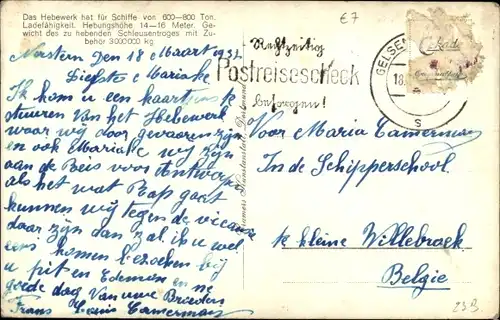 Das Hebewerk hat für Schiffe von 600—800 Ton.
Ladefähigkeit. Hebungshöhe 14—16 Meter. Ge-
wicht des zu hebenden Schleusentroges mit Zu-
behör 3000000 kg
€7
Rechtzeitig
Postreisescheck
besorgen!
GELSEN
18.
s
den 18 Maart 1953
Liefste Mariake
Ik kom u een kaartje
stuuren van het Hebewerk
waar wij door gevaaren zijn
en ook Mariake wij zijn
aan de Reis voor Antwerp
als het wat Rap gaat
kunnen wij tegen de vicance
daar zijn dan zal ik u wel
eens komen bezoeken bij
u pit en Edemon en ne
goede dag van uwe Broeders
Frans Louis Camerman
Cramers Kunstanstalt, Dortmund
Voor Maria Camerman
In de Schipperschool
te kleine Willebroek
Belgie
23B